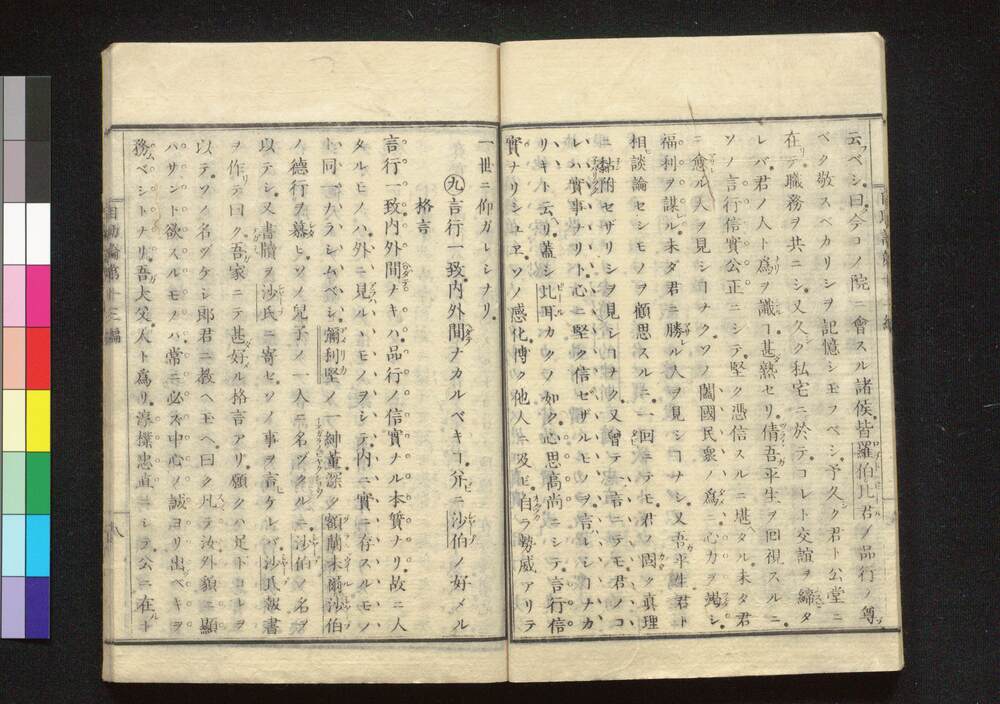 云ベシ曰今コノ院ニ會スル諸侯皆羅伯比君ノ品行ノ尊
ベク敬スベカリシヲ記憶シモフベシ予久ク君ト公堂ニ
在テ職務ヲ共ニシ又久ク私宅ニ於テコレト交誼ヲ締タ
レバ君ノ人ト為ヲ識ヿ甚熟セリ倩吾平生ヲ回視スルニ
ソノ言行信實公正ニシテ堅ク憑信スルニ堪タル未タ君
ニ愈ル人ヲ見シヿナクソノ闔國民衆ノ為ニ心力ヲ竭シ
福利ヲ謀ル未ダ君ニ勝ル人ヲ見シヿナシ又吾平生君ト
相談論セシモノヲ顧思スルニ一回ニテモ君ノ固ク真理
ニ黏附セザリシヲ見シヿナク又曾テ一言ニテモ君ノコ
レハ實事ナリト心ニ堅ク信セザルモノヲ言レシヿナカ
リキト云リ蓋シ比耳カクノ如ク心思高尚ニシテ言行信
實ナリシユヱソノ感化博ク他人ニ及ビ自ラ勢威アリテ
一世ニ仰ガレシナリ
㊈言行一致内外間ナカルベキヿ并ニ沙伯ノ好メル
格言
言行一致内外間ナキハ品行ノ信實ナル本質ナリ故ニ人
タルモノハ外ニ見ルヽモノヲシテ内ニ實ニ存スルモノ
ト同一ナラシムベシ彌利堅ノ一紳董深ク額蘭未爾沙伯
ノ德行ヲ慕ヒソノ兒子ノ一人ニ名ヅクルニ沙伯ノ名ヲ
以テシ又書牘ヲ沙氏ニ寄セソノ事ヲ言ケレバ沙氏報書
ヲ作テ曰ク吾家ニテ甚好メル格言アリ願クハ足下コレヲ
以テソノ名ヅケシ郎君ニ教ヘモヘ曰ク凡テ汝外貌ニ顯
ハサント欲スルモノハ常ニ必ズ中心ノ誠ヨリ出ベキヲ
務ムベシトナリ吾大父人ト為リ淳樸忠直ニシテ公ニ在ト